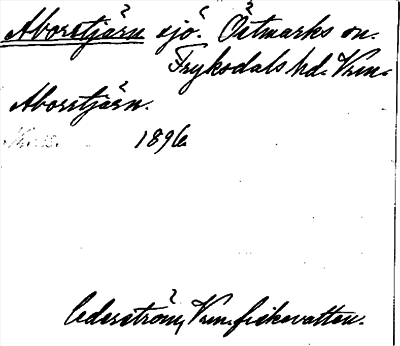 Aborrtjärn sjö. Östmarks sn.
Fryksdals hd. Vrm.
Aborrtjärn.
1896
Cederström, Vrm. fiskevatten.